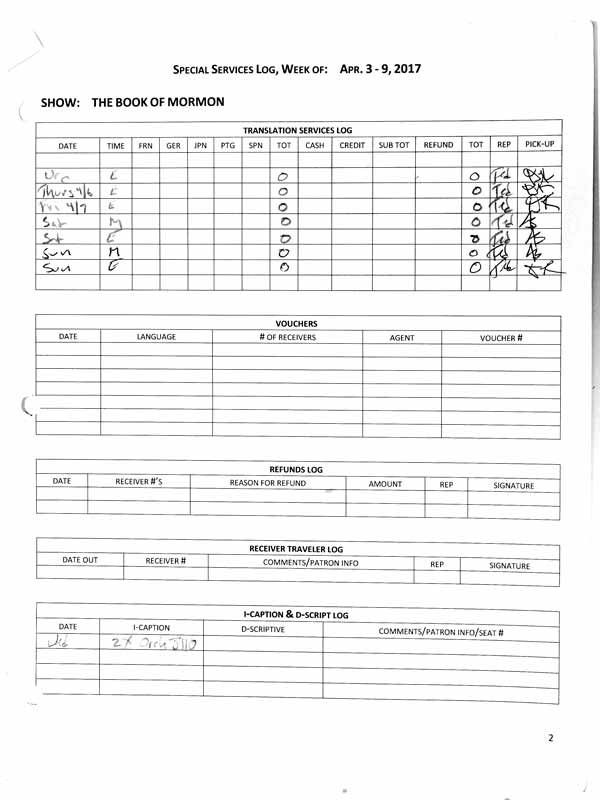 SPECIAL SERVICES LOG, WEEK OF: APR. 3 - 9, 2017
SHOW: THE BOOK OF MORMON
TRANSLATION SERVICES LOG
DATE TIME FRN GER JPN PTG SPN TOT CASH CREDIT SUB TOT REFUND TOT REP PICK-UP
E 0 0 Ted
Thurs 4/6 E 0 0 Ted
Fri 4/7 E 0 0 Ted
Sat M 0 0 Ted AS
Sat E 0 0 Ted AS
Sun M 0 0 Ted AS
Sun E 0 0
VOUCHERS
DATE LANGUAGE # OF RECEIVERS AGENT VOUCHER #
REFUNDS LOG
DATE RECEIVER #'S REASON FOR REFUND AMOUNT REP SIGNATURE
RECEIVER TRAVELER LOG
DATE OUT RECEIVER # COMMENTS/PATRON INFO REP SIGNATURE
I-CAPTION & D-SCRIPT LOG
DATE I-CAPTION D-SCRIPTIVE COMMENTS/PATRON INFO/SEAT #
Wed 2x Orch
2